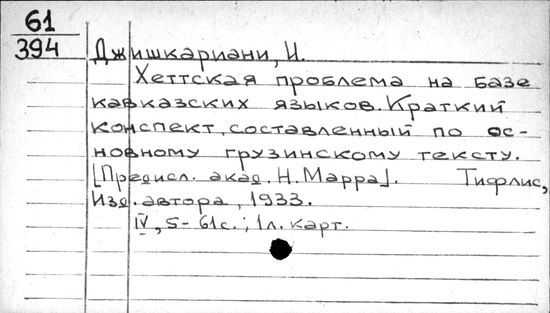 61
394
Джишкариани, И.
Хеттская проблема на базе
кавказских языков. Краткий
конспект, составленный по ос-
новному грузинскому тексту.
[Предисл. акад. Н. Марра]. Тифлис,
Изд. автора, 1933.
IV, 5-61с.; 1л. карт.